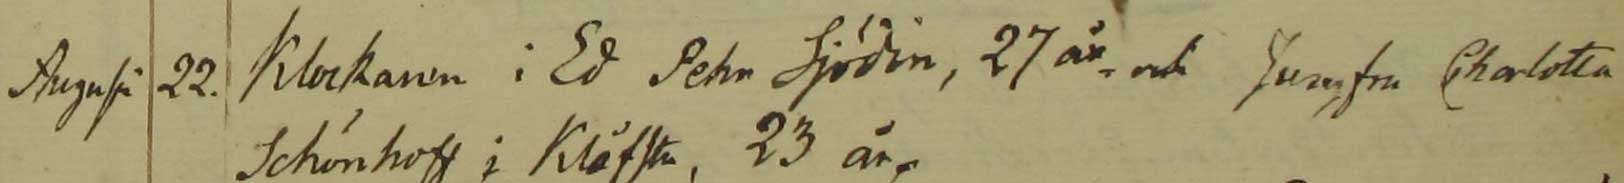 Augusti 22. Klockaren i Ed Pehr Sjödin, 27 år. och Jumfru Charlotta
Schönhoff i Kläfsta, 23 år.